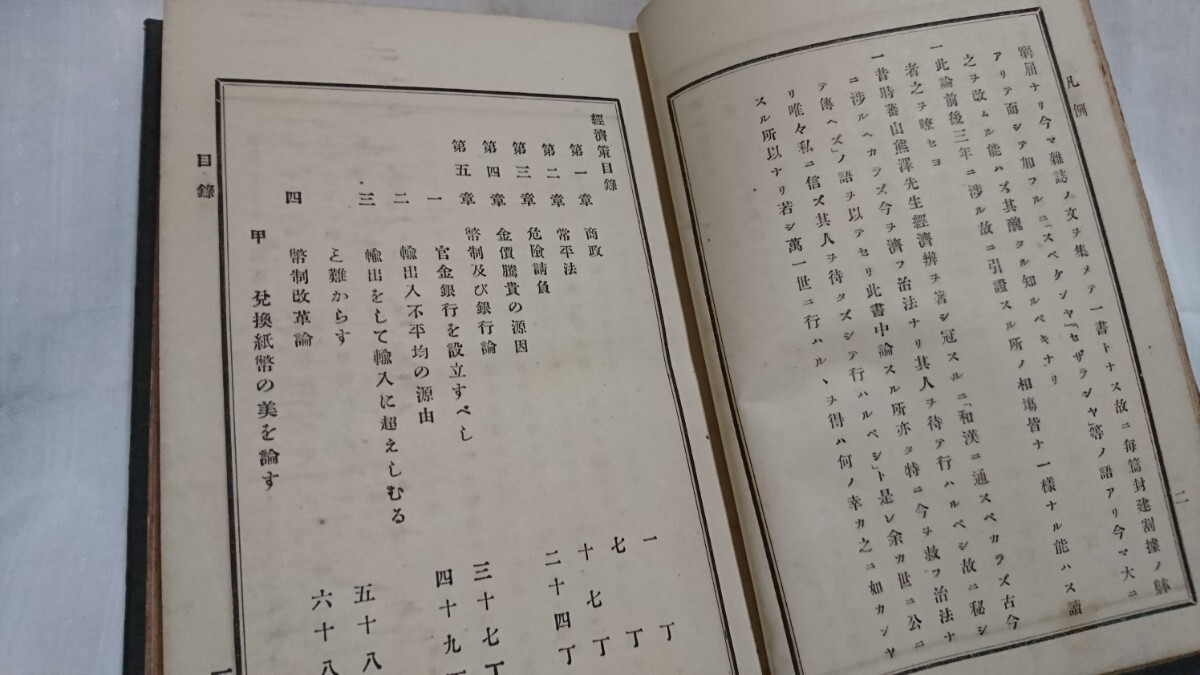 凡例
二
窮屈ナリ今マ雜誌ノ文ヲ集メテ一書トナス故ニ毎篇封建割據ノ躰
アリテ而シテ加フルニ「スベケンヤ」「セザランヤ」等ノ語アリ今マ大ニ
之ヲ改ムル能ハズ其醜タル知ルベキナリ
一此論前後三年ニ涉ル故ニ引證スル所ノ相塲皆ナ一樣ナル能ハス讀
者之ヲ暸セヨ
一昔時蕃山熊澤先生經濟辨ヲ著シ冠スルニ「和漢ニ通スベカラズ古今
ニ涉ルヘカラズ今ヲ濟フ治法ナリ其人ヲ待テ行ハルベシ故ニ秘シ
テ傳ヘズ」ノ語ヲ以テセリ此書中論スル所亦タ特ニ今ヲ救フ治法ナ
リ唯々私ニ信ズ其人ヲ待タズシテ行ハルベシト是レ余カ世ニ公ニ
スル所以ナリ若シ萬一世ニ行ハル、ヲ得ハ何ノ幸カ之ニ如カンヤ
經濟策目錄
第一章 商政 一丁
第二章 常平法 七丁
第三章 危險請負 十七丁
第四章 金價騰貴の源因 二十四丁
第五章 幣制及び銀行論 三十七丁
一 官金銀行を設立すべし
二 輸出入不平均の源由 四十九
三 輸出をして輸入に超えしむる
と難からす 五十八
四 幣制改革論
甲 兌換紙幣の美を論す 六十八
目錄
一